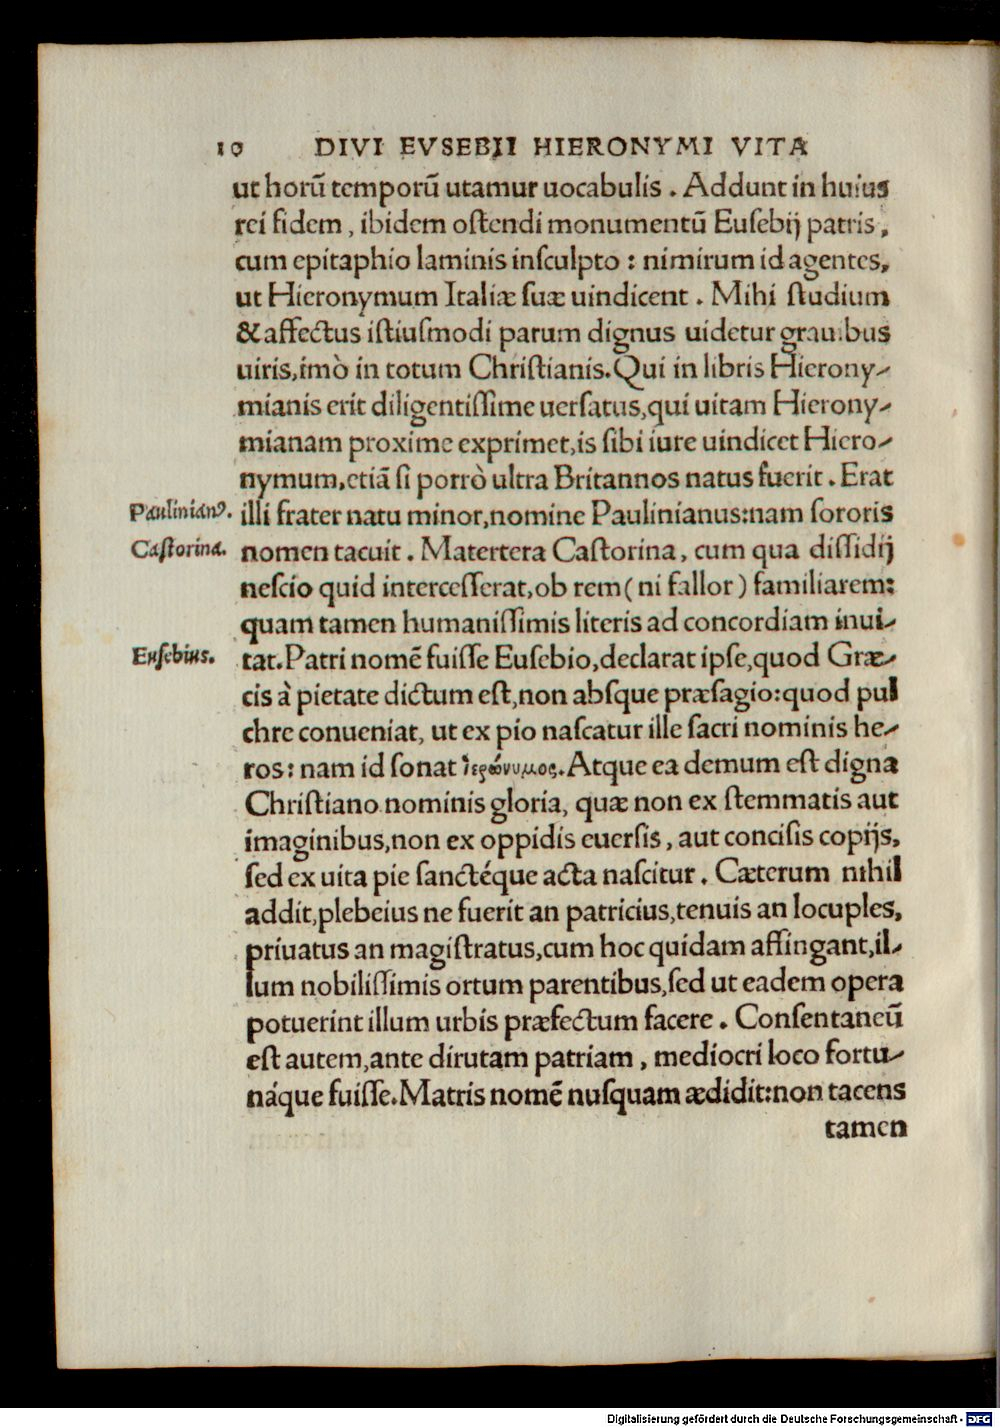 10 DIVI EVSEBII HIERONYMI VITA
ut horū temporū utamur uocabulis . Addunt in huius
rei fidem , ibidem ostendi monumentū Eusebij patris ,
cum epitaphio laminis insculpto : nimirum id agentes,
ut Hieronymum Italiæ suæ uindicent . Mihi studium
& affectus istiusmodi parum dignus uidetur grauibus
uiris,imò in totum Christianis.Qui in libris Hierony-
mianis erit diligentissime uersatus,qui uitam Hierony-
mianam proxime exprimet,is sibi iure uindicet Hiero-
nymum,etiā si porrò ultra Britannos natus fuerit . Erat
Paulinianꝰ. illi frater natu minor,nomine Paulinianus:nam sororis
Castorina. nomen tacuit . Matertera Castorina , cum qua dissidij
nescio quid intercesserat,ob rem ( ni fallor ) familiarem:
quam tamen humanissimis literis ad concordiam inui-
Eusebius. tat.Patri nomē fuisse Eusebio,declarat ipse,quod Græ-
cis à pietate dictum est,non absque præsagio:quod pul
chre conueniat, ut ex pio nascatur ille sacri nominis he-
ros : nam id sonat ἱερώνυμος. Atque ea demum est digna
Christiano nominis gloria, quæ non ex stemmatis aut
imaginibus,non ex oppidis euersis , aut concisis copijs,
sed ex uita pie sanctéque acta nascitur . Cæterum nihil
addit,plebeius ne fuerit an patricius,tenuis an locuples,
priuatus an magistratus,cum hoc quidam affingant,il-
lum nobilissimis ortum parentibus,sed ut eadem opera
potuerint illum urbis præfectum facere . Consentaneū
est autem,ante dirutam patriam , mediocri loco fortu-
náque fuisse.Matris nomē nusquam ædidit:non tacens
tamen
Digitalisierung gefördert durch die Deutsche Forschungsgemeinschaft - DFG